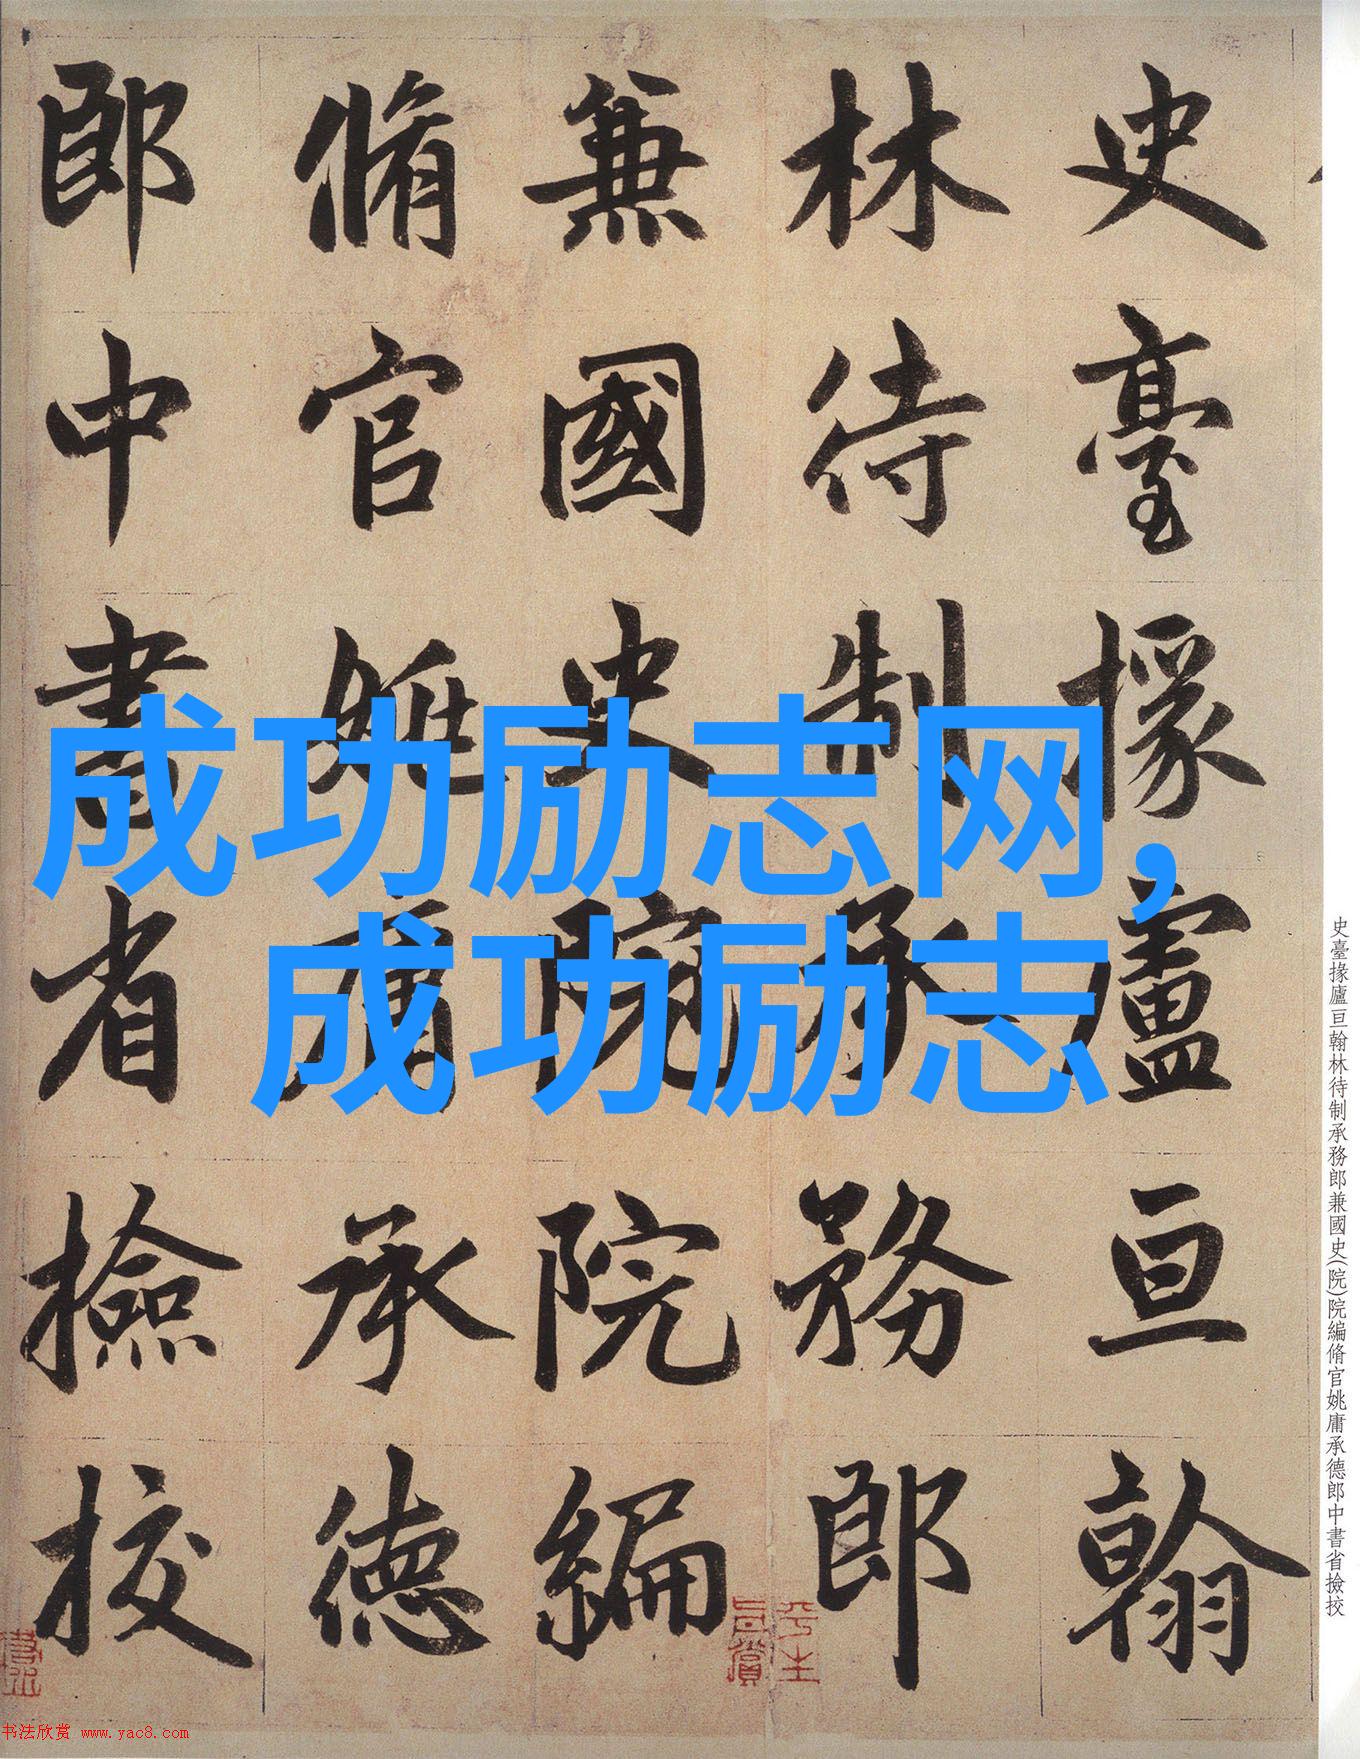 史臺掾盧亘翰
林待制承務郎
兼國史院院編
脩官姚庸承德
郎中書省撿挍
成功励志网,
成功励志
史臺掾廬亘翰林待制承務郎兼國史(院)院編脩官姚庸承德郎中書省撿挍
书法欣赏 www.yac8.com